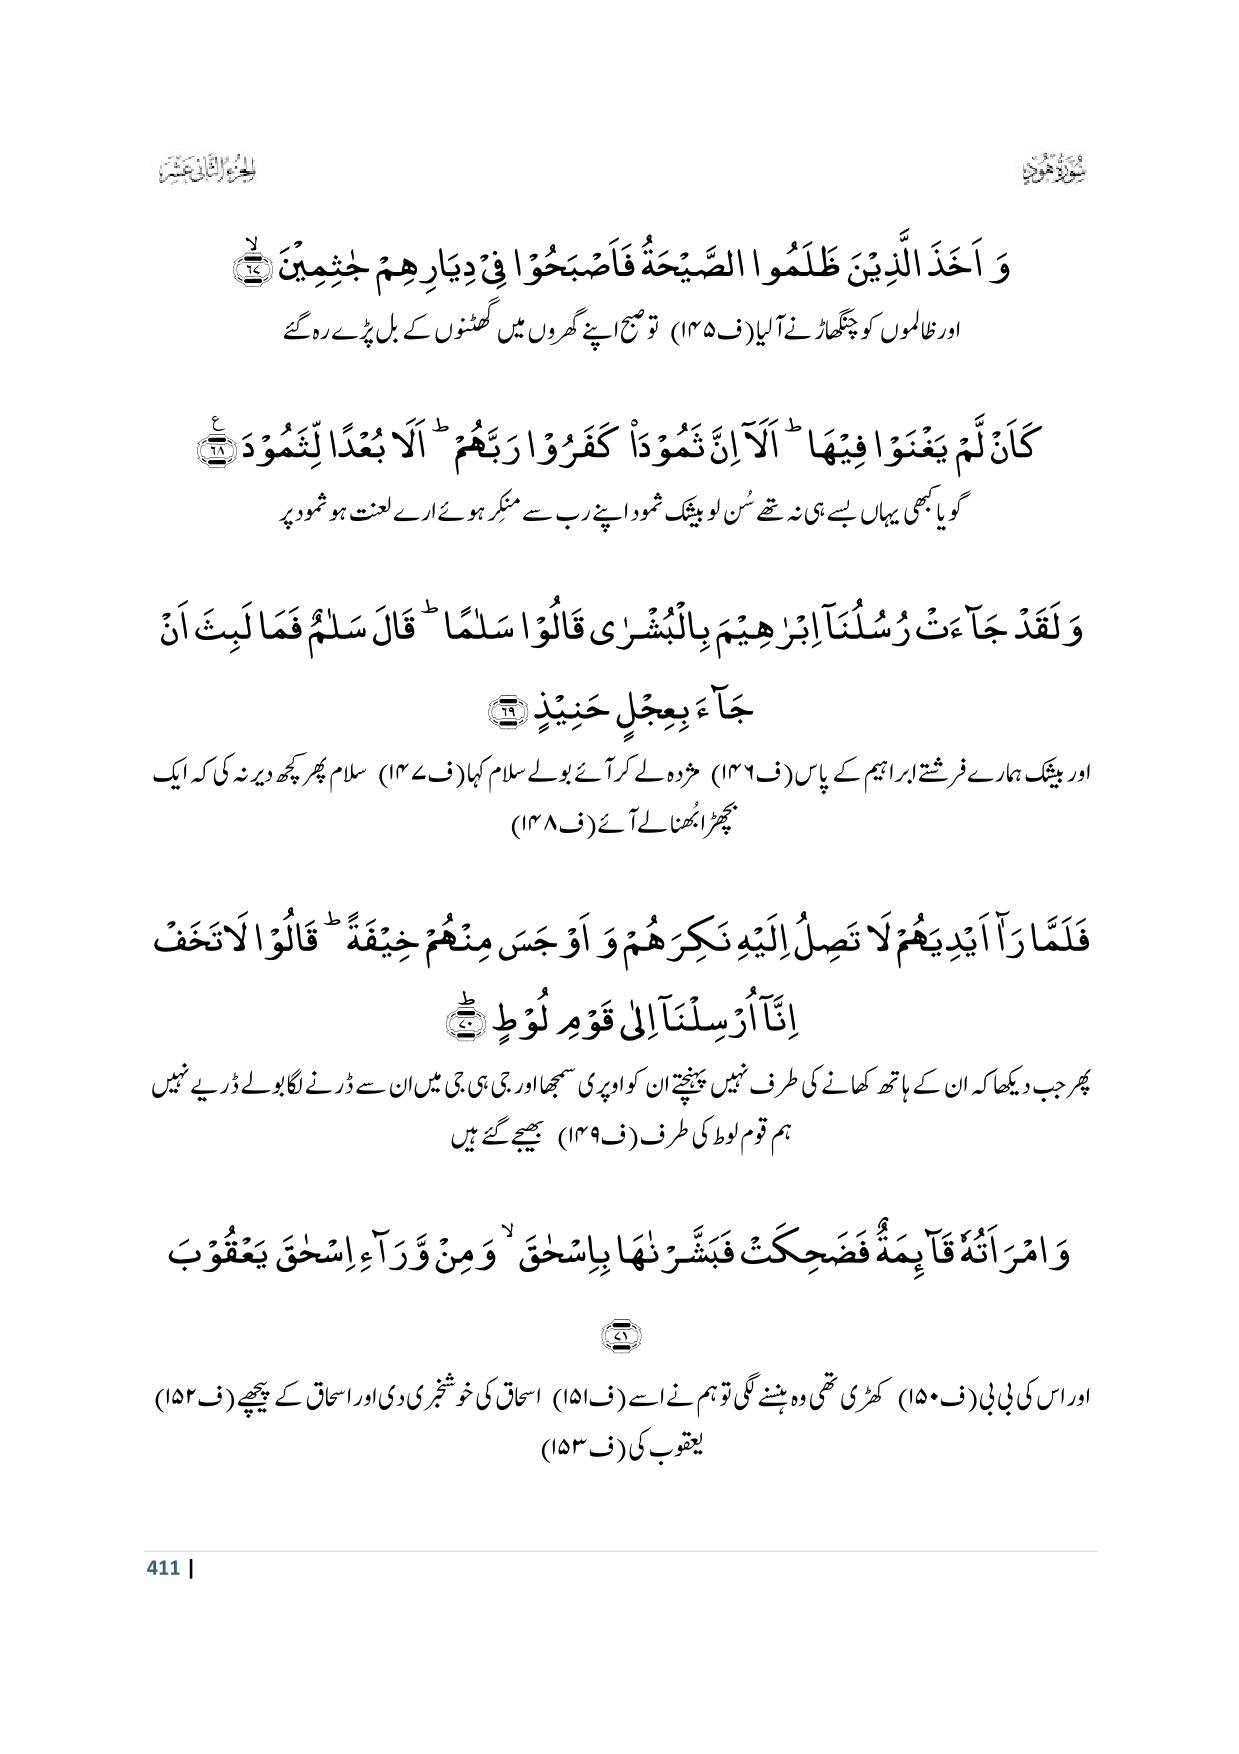 سُوْرَۃُ ھُوْدٍ
الجزء الثانی عشر
وَ اَخَذَ الَّذِیْنَ ظَلَمُوا الصَّیْحَةُ فَاَصْبَحُوْا فِیْ دِیَارِهِمْ جٰثِمِیْنَۙ۝۶۷
اور ظالموں کو چنگھاڑ نے آ لیا(ف۱۴۵) تو صبح اپنے گھروں میں گھٹنوں کے بل پڑے رہ گئے
كَاَنْ لَّمْ یَغْنَوْا فِیْهَاؕ اَلَاۤ اِنَّ ثَمُوْدَاۡ كَفَرُوْا رَبَّهُمْؕ اَلَا بُعْدًا لِّثَمُوْدَ۠۝۶۸
گویا کبھی یہاں بسے ہی نہ تھے سُن لو بیشک ثمود اپنے رب سے منکِر ہوئے ارے لعنت ہو ثمود پر
وَ لَقَدْ جَآءَتْ رُسُلُنَاۤ اِبْرٰهِیْمَ بِالْبُشْرٰى قَالُوْا سَلٰمًاؕ قَالَ سَلٰمٌ فَمَا لَبِثَ اَنْ
جَآءَ بِعِجْلٍ حَنِیْذٍ۝۶۹
اور بیشک ہمارے فرشتے ابراہیم کے پاس(ف۱۴۶) مژدہ لے کر آئے بولے سلام کہا(ف۱۴۷) سلام پھر کچھ دیر نہ کی کہ ایک
بچھڑا بُھنا لے آئے(ف۱۴۸)
فَلَمَّا رَاٰۤ اَیْدِیَهُمْ لَا تَصِلُ اِلَیْهِ نَكِرَهُمْ وَ اَوْجَسَ مِنْهُمْ خِیْفَةًؕ قَالُوْا لَا تَخَفْ
اِنَّاۤ اُرْسِلْنَاۤ اِلٰى قَوْمِ لُوْطٍؕ۝۷۰
پھر جب دیکھا کہ ان کے ہاتھ کھانے کی طرف نہیں پہنچتے ان کو اوپری سمجھا اور جی ہی جی میں ان سے ڈرنے لگا بولے ڈریے نہیں
ہم قوم لوط کی طرف(ف۱۴۹) بھیجے گئے ہیں
وَ امْرَاَتُهٗ قَآئِمَةٌ فَضَحِكَتْ فَبَشَّرْنٰهَا بِاِسْحٰقَۙ وَ مِنْ وَّرَآءِ اِسْحٰقَ یَعْقُوْبَ
۝۷۱
اور اس کی بی بی(ف۱۵۰) کھڑی تھی وہ ہنسنے لگی تو ہم نے اسے(ف۱۵۱) اسحاق کی خوشخبری دی اور اسحاق کے پیچھے(ف۱۵۲)
یعقوب کی(ف۱۵۳)
411 |